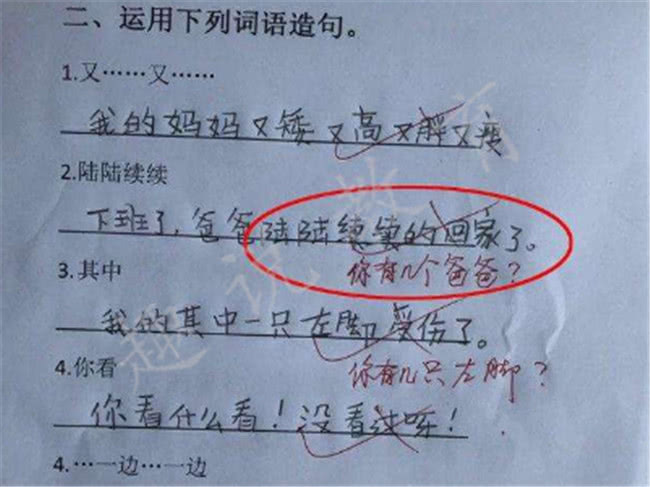 二、运用下列词语造句。
1.又……又……
我的妈妈又矮又高又胖又瘦
2.陆陆续续
下班了,爸爸陆陆续续的回家了。
你有几个爸爸?
3.其中
我的其中一只左脚受伤了。
你有几只左脚?
4.你看
你看什么看!没看过呀!
4.…一边…一边
趣说教育